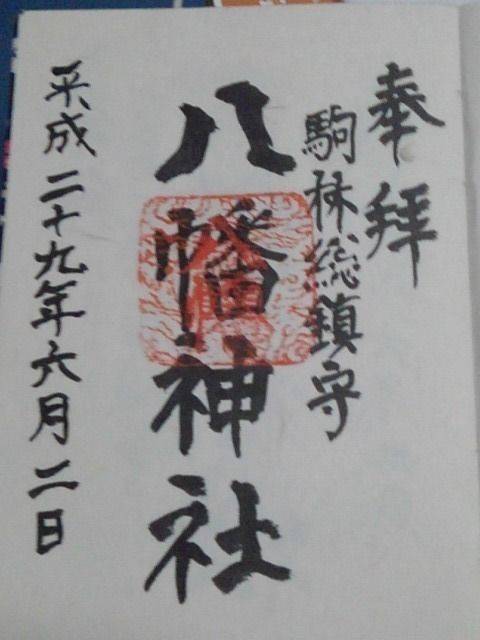 奉拝
駒林総鎮守
八幡神社
平成二十九年六月二日